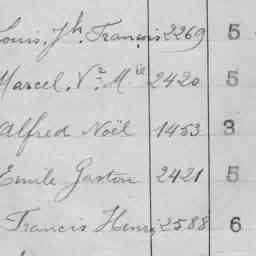 Louis, Jh. François 2269 5
Marcel, Vr. Mie 2420 5
Alfred Noël 1453 3
Emile Gaston 2421 5
Francis Henri 2588 6